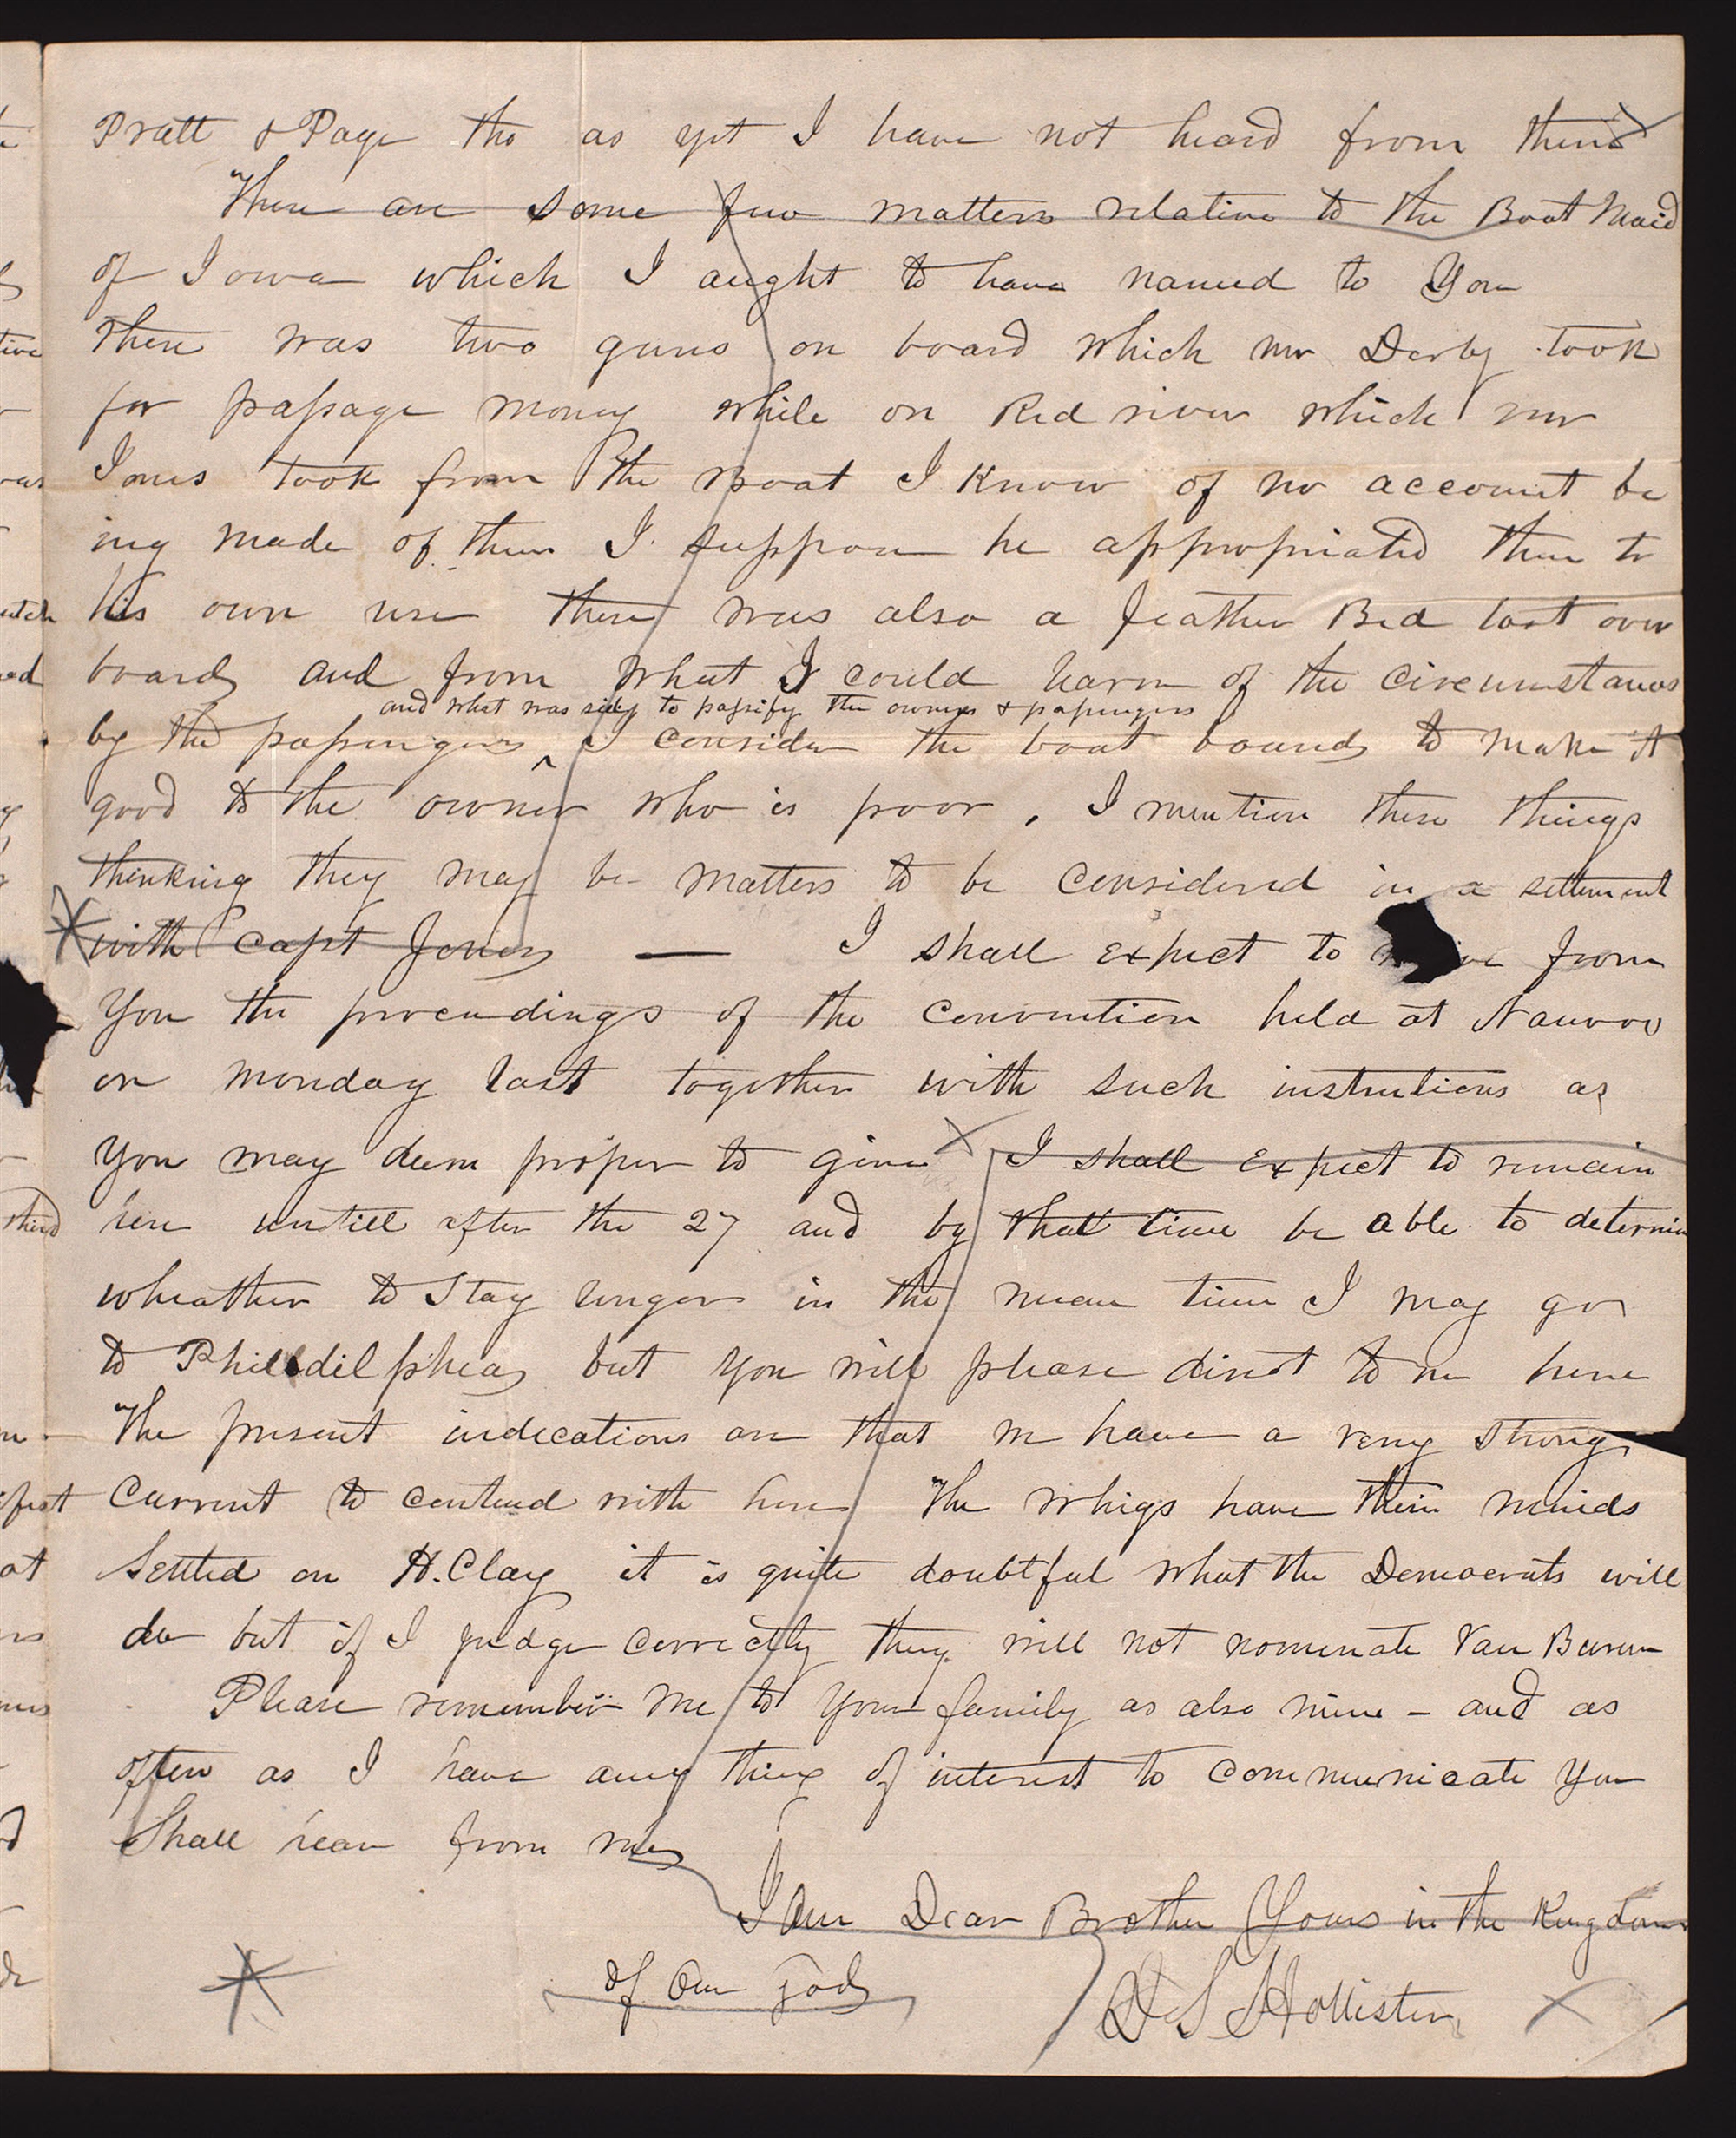 Pratt & Page tho as yet I have not heard from them
There are some few matters relative to the Boat Maid
of Iowa which I aught to have named to You
there was two guns on board which mr Derby took
for passage money while on Red river which mr
Jones took from the Boat I know of no account be
ing made of them I suppose he appropriated them to
his own use there was also a feather Bed lost over
board and from what I could learn of the circumstances
and what was said to passify the owner & passengers
by the passengers ^ I consider the boat bound to make it
good to the owner who is poor , I mention these things
thinking they may be matters to be considered in a settlement
with Capt Jones — I shall expect to from
You the proceedings of the convention held at Nauvoo
on monday last together with such instrutions as
You may deem proper to give I shall expect to remain
here untill after the 27 and by that time be able to determin
wheather to Stay longer in the mean time I may go
to Philidilphea but you will please direct to me here
The present indecations are that we have a very strong
Current to contend with here The whigs have their minds
Settled on H. Clay it is quite doubtful what the Democrats will
do but if I judge correctly they will not nominate Van Buren
Please remember me to your family as also mine – and as
often as I have any thing of interest to communicate you
Shall hear from me
I Am Dear Brother Yours in the Kingdom
of Our God
D S Hollister